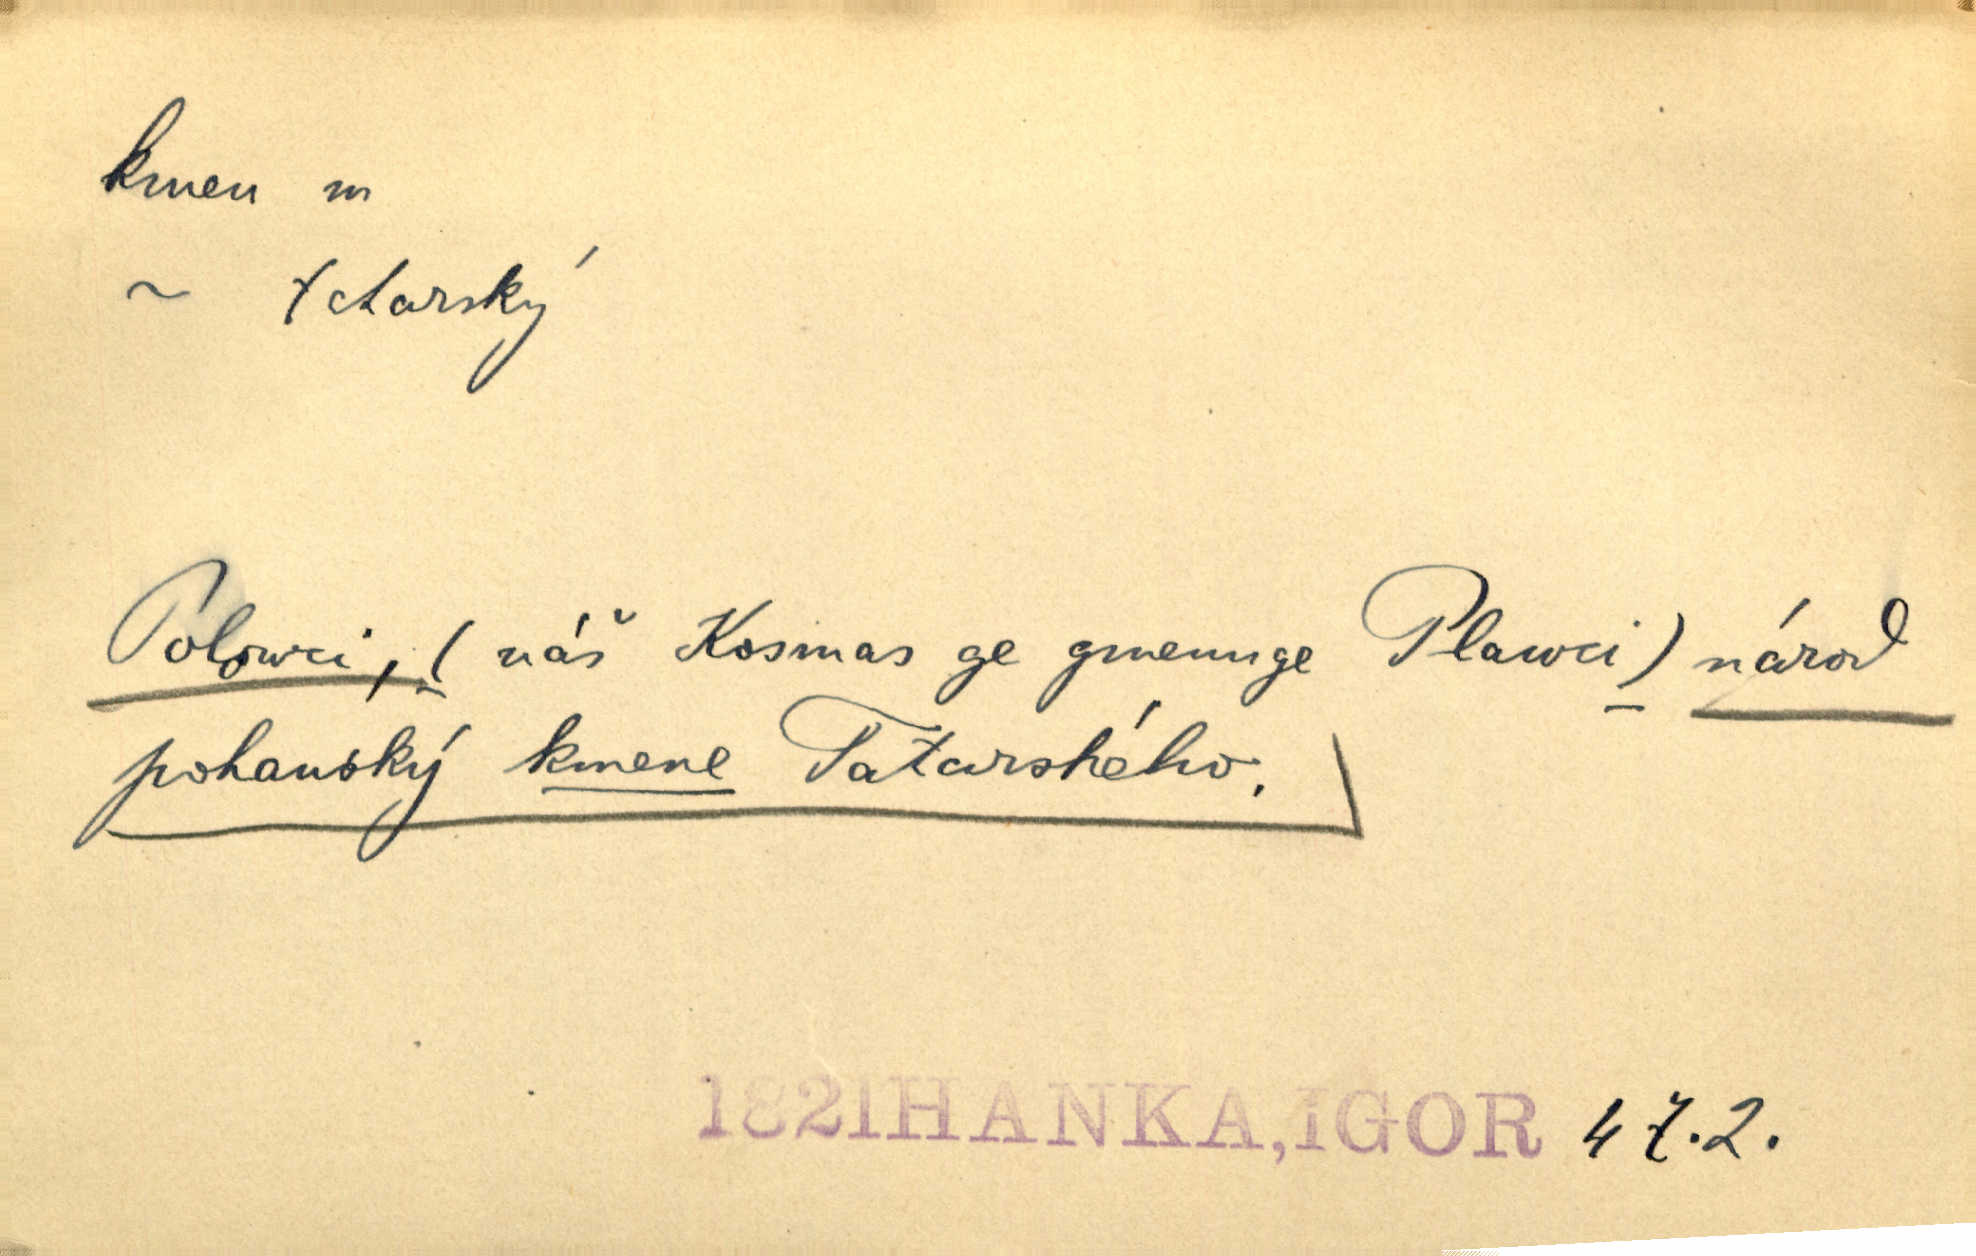 kmen m
~ tatarský
Polowci, (náš Kosmas ge gmenuge Plawci) národ
pohanský kmene Tatarského.
1821 HANKA, IGOR 47.2.